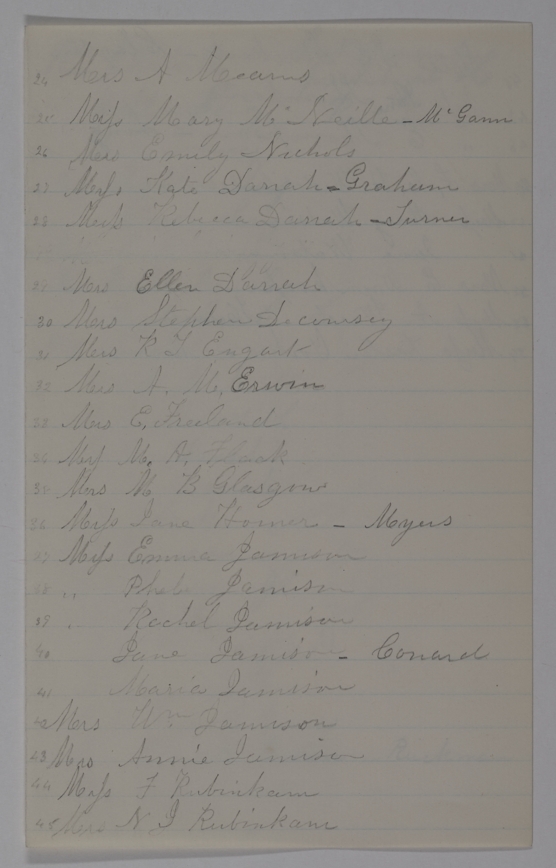 24 Mrs A Mearns
25 Miss Mary McNeille - McGann
26 Mrs Emily Nichols
27 Miss Kate Darrah - Graham
28 Miss Rebecca Darrah - Turner
29 Mrs Ellen Darrah
30 Mrs Stephen Decoursey
31 Mrs R T Engart
32 Mrs A. M. Erwin
33 Mrs E. Freeland
34 M. A. Flack
35 Mrs M B Glasgow
36 Miss Jane Homer - Moyers
37 Miss Emma Jamison
38 " Phebe Jamison
39 " Rachel Jamison
40 Jane Jamison - Conard
41 Maria Jamison
42 Mrs Wm Jamison
43 Mrs Annie Jamison
44 Miss F Rubinkam
45 Mrs N I Rubinkam